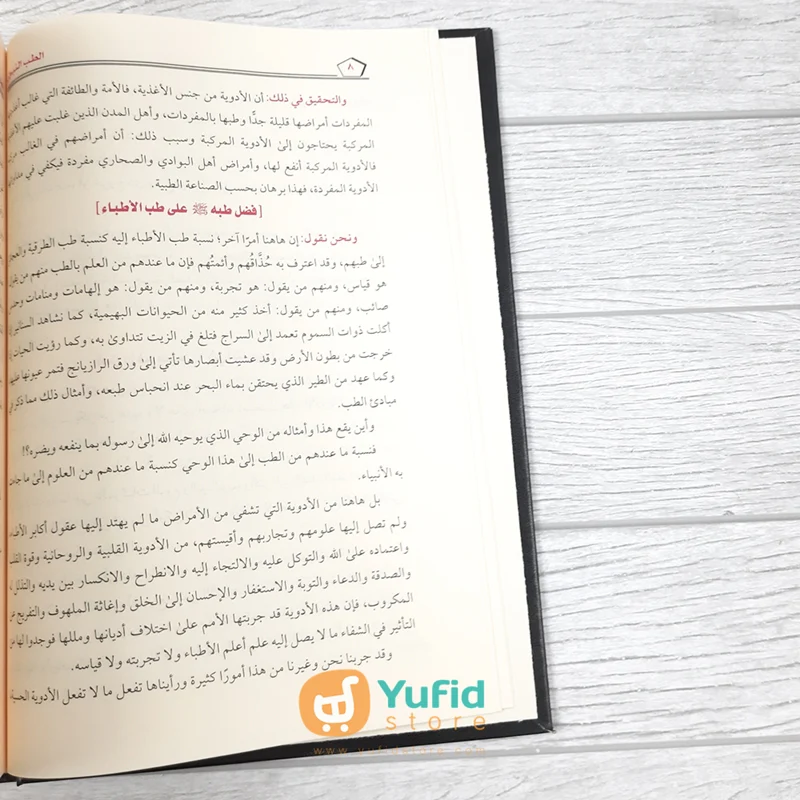 الطب
٨
والتحقيق في ذلك: أن الأدوية من جنس الأغذية، فالأمة والطائفة التي غالب
المفردات أمراضها قليلة جدًّا وطبها بالمفردات، وأهل المدن الذين غلبت عليهم
المركبة يحتاجون إلى الأدوية المركبة وسبب ذلك: أن أمراضهم في الغالب
فالأدوية المركبة أنفع لها، وأمراض أهل البوادي والصحاري مفردة فيكفي في
الأدوية المفردة، فهذا برهان بحسب الصناعة الطبية.
[فضل طبه ﷺ على طب الأطباء]
ونحن نقول: إن هاهنا أمرًا آخر؛ نسبة طب الأطباء إليه كنسبة طب الطرقية
إلى طبهم، وقد اعترف به حُذَّاقُهم وأئمتُهم فإن ما عندهم من العلم بالطب منهم من
هو قياس، ومنهم من يقول: هو تجربة، ومنهم من يقول: هو إلهامات ومنامات
صائب، ومنهم من يقول: أخذ كثير منه من الحيوانات البهيمية، كما نشاهد السنانير
أكلت ذوات السموم تعمد إلى السراج فتلغ في الزيت تتداوى به، وكما رؤيت الحيات
خرجت من بطون الأرض وقد عشيت أبصارها تأتي إلى ورق الرازيانج فتمر عيونها عليها
وكما عهد من الطير الذي يحتقن بماء البحر عند انحباس طبعه، وأمثال ذلك مما ذكر
مبادئ الطب.
وأين يقع هذا وأمثاله من الوحي الذي يوحيه الله إلى رسوله بما ينفعه ويضره؟!
فنسبة ما عندهم من الطب إلى هذا الوحي كنسبة ما عندهم من العلوم إلى ما جاءت
به الأنبياء.
بل هاهنا من الأدوية التي تشفي من الأمراض ما لم يهتد إليها عقول أكابر
ولم تصل إليها علومهم وتجاربهم وأقيستهم، من الأدوية القلبية والروحانية وقوة
واعتماده على الله والتوكل عليه والالتجاء إليه والانطراح والانكسار بين يديه والتذلل
والصدقة والدعاء والتوبة والاستغفار والإحسان إلى الخلق وإغاثة الملهوف والتفريج
المكروب، فإن هذه الأدوية قد جربتها الأمم على اختلاف أديانها ومللها فوجدوا لها
التأثير في الشفاء ما لا يصل إليه علم أعلم الأطباء ولا تجربته ولا قياسه.
وقد جربنا نحن وغيرنا من هذا أمورًا كثيرة ورأيناها تفعل ما لا تفعل الأدوية
Yufid
store